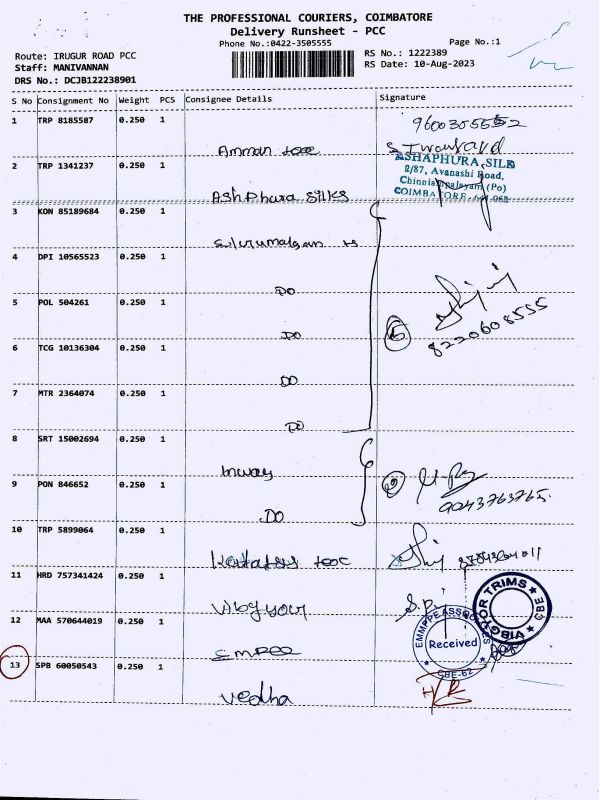 THE PROFESSIONAL COURIERS, COIMBATORE
Delivery Runsheet - PCC
Phone No.:0422-3505555
Page No.:1
Route: IRUGUR ROAD PCC
Staff: MANIVANNAN
DRS No.: DCJB122238901
RS No.: 1222389
RS Date: 10-Aug-2023
S No Consignment No Weight PCS Consignee Details Signature
1 TRP 8185587 0.250 1
9600355552
Amman
2 TRP 1341237 0.250 1
ASHAPHURA SILK
2/87, Avanashi Road,
Chinniampalayam (Po)
COIMBATORE-641 062
Ashphura silks
3 KON 85189684 0.250 1
4 DPI 10565523 0.250 1
DO
5 POL 504261 0.250 1
DO
5
8220608555
6 TCG 10136304 0.250 1
DO
7 MTR 2364074 0.250 1
DO
8 SRT 15002694 0.250 1
Inway
9 PON 846652 0.250 1
DO
2
9043763765.
10 TRP 5899064 0.250 1
11 HRD 757341424 0.250 1
Vibgyour
VIBGYOR TRIMS
CBE
12 MAA 570644019 0.250 1
EMMPPE ASSOCIATES
Received
CBE-62
13 SPB 60050543 0.250 1
vedha